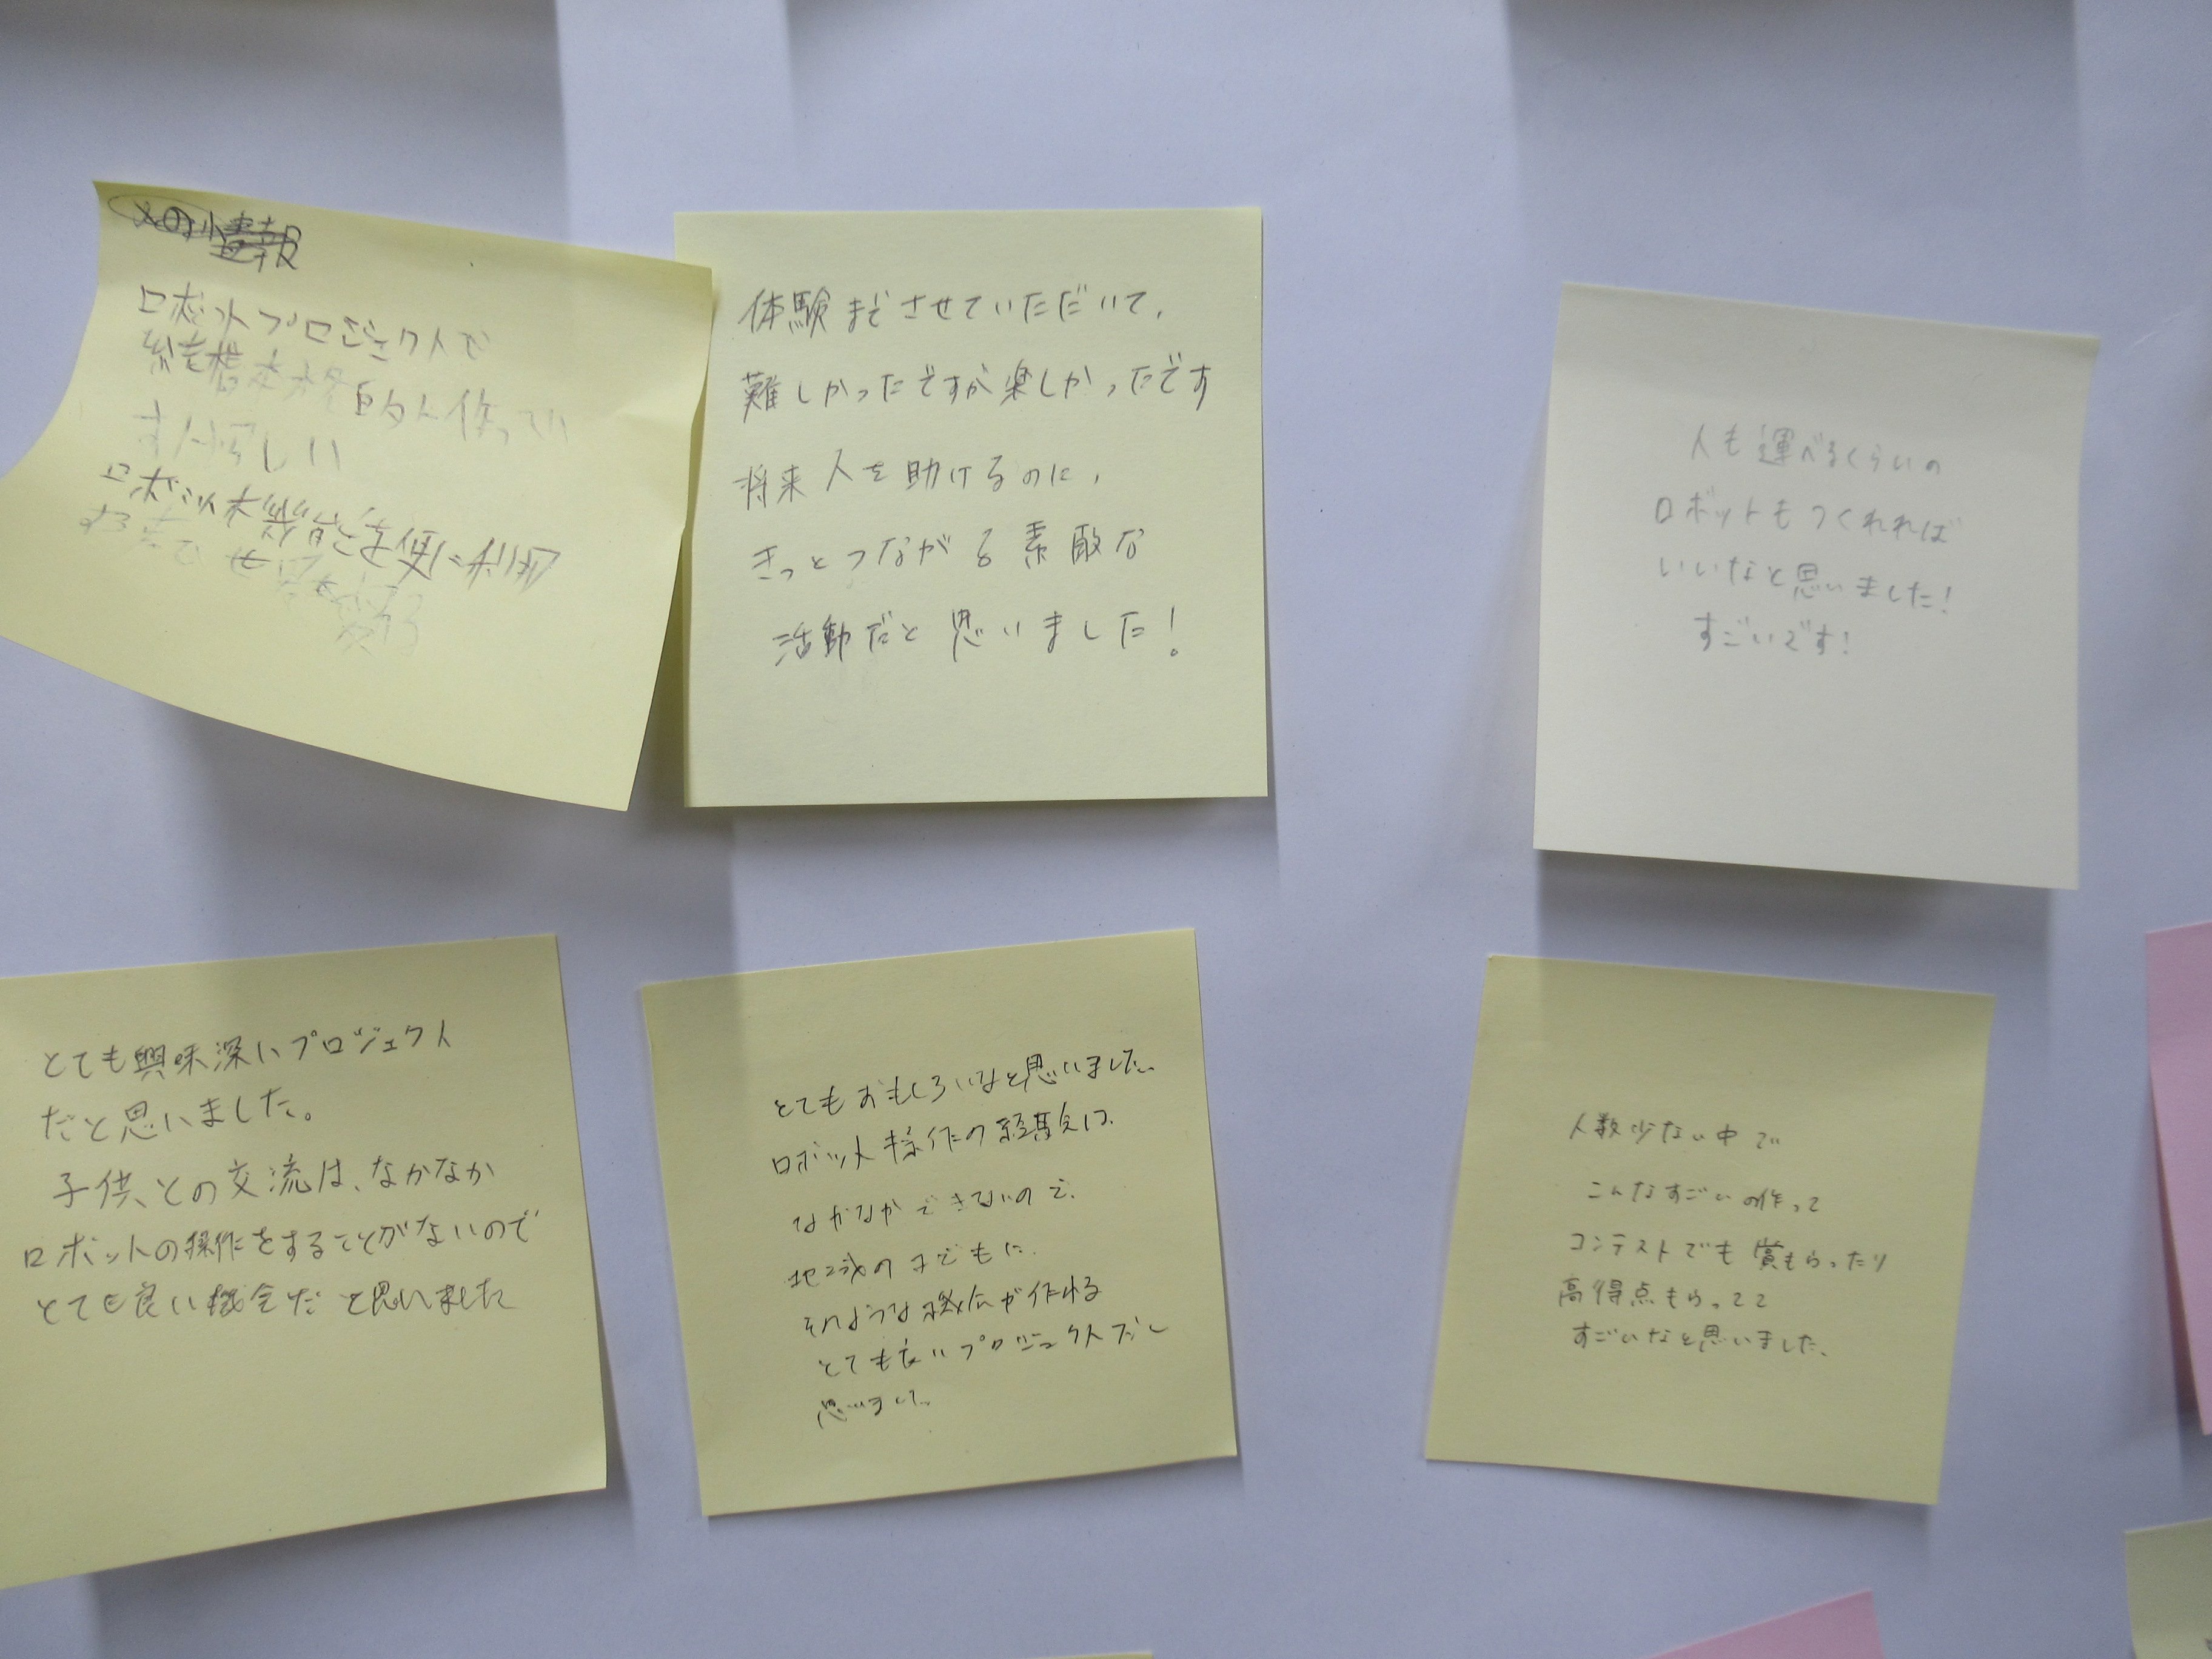 ロボットプロジェクトで
結構本格的に作ってい
すばらしい
体験までさせていただいて,
難しかったですが楽しかったです
将来人を助けるのに,
きっとつながる素敵な
活動だと思いました!
人も運べるくらいの
ロボットもつくれれば
いいなと思いました!
すごいです!
とても興味深いプロジェクト
だと思いました。
子供との交流は、なかなか
ロボットの操作をすることがないので
とても良い機会だと思いました
とてもおもしろいなと思いました。
ロボット操作の経験は
なかなかできないので、
地域の子どもに
そのような機会が作れる
とても良いプロジェクトだと
思いました。
人数少ない中で
こんなすごいの作って
コンテストでも賞もらったり
高得点もらってて
すごいなと思いました。